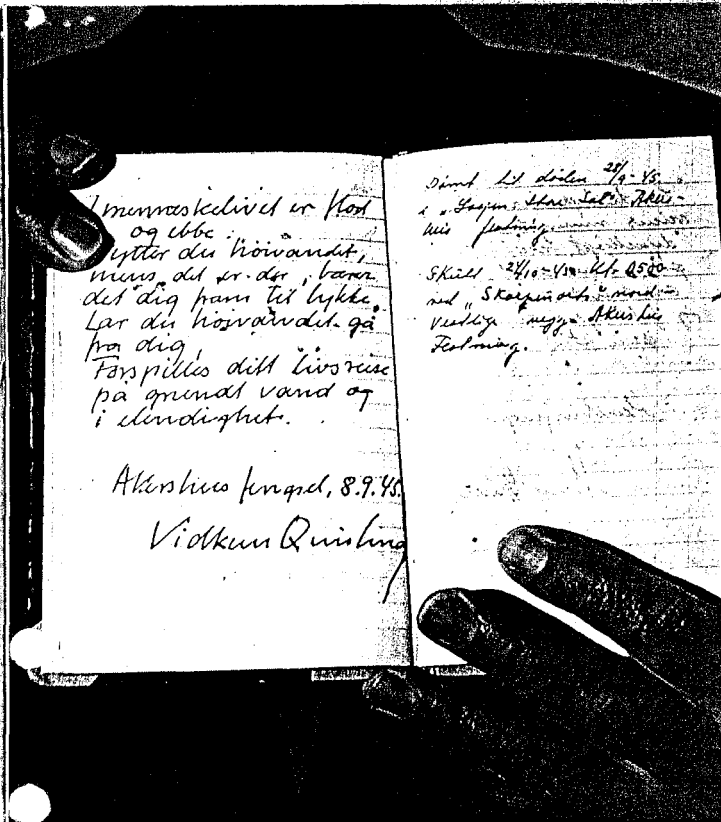 I menneskelivet er flod
og ebbe.
Nytter du høivandet,
mens det er der, bærer
det dig fram til lykke.
Lar du høivandet gå
fra dig,
Forspilles ditt livsreise
på grundt vand og
i elendighet.
Akershus fengsel, 8.9.45.
Vidkun Quisling
Dømt til døden 28/9-45
i "Losjens Store Sal" Akers-
hus festning
Skutt 24/10-45 kl. 0500
ved " " nord-
vestlige Akershus
Festning.